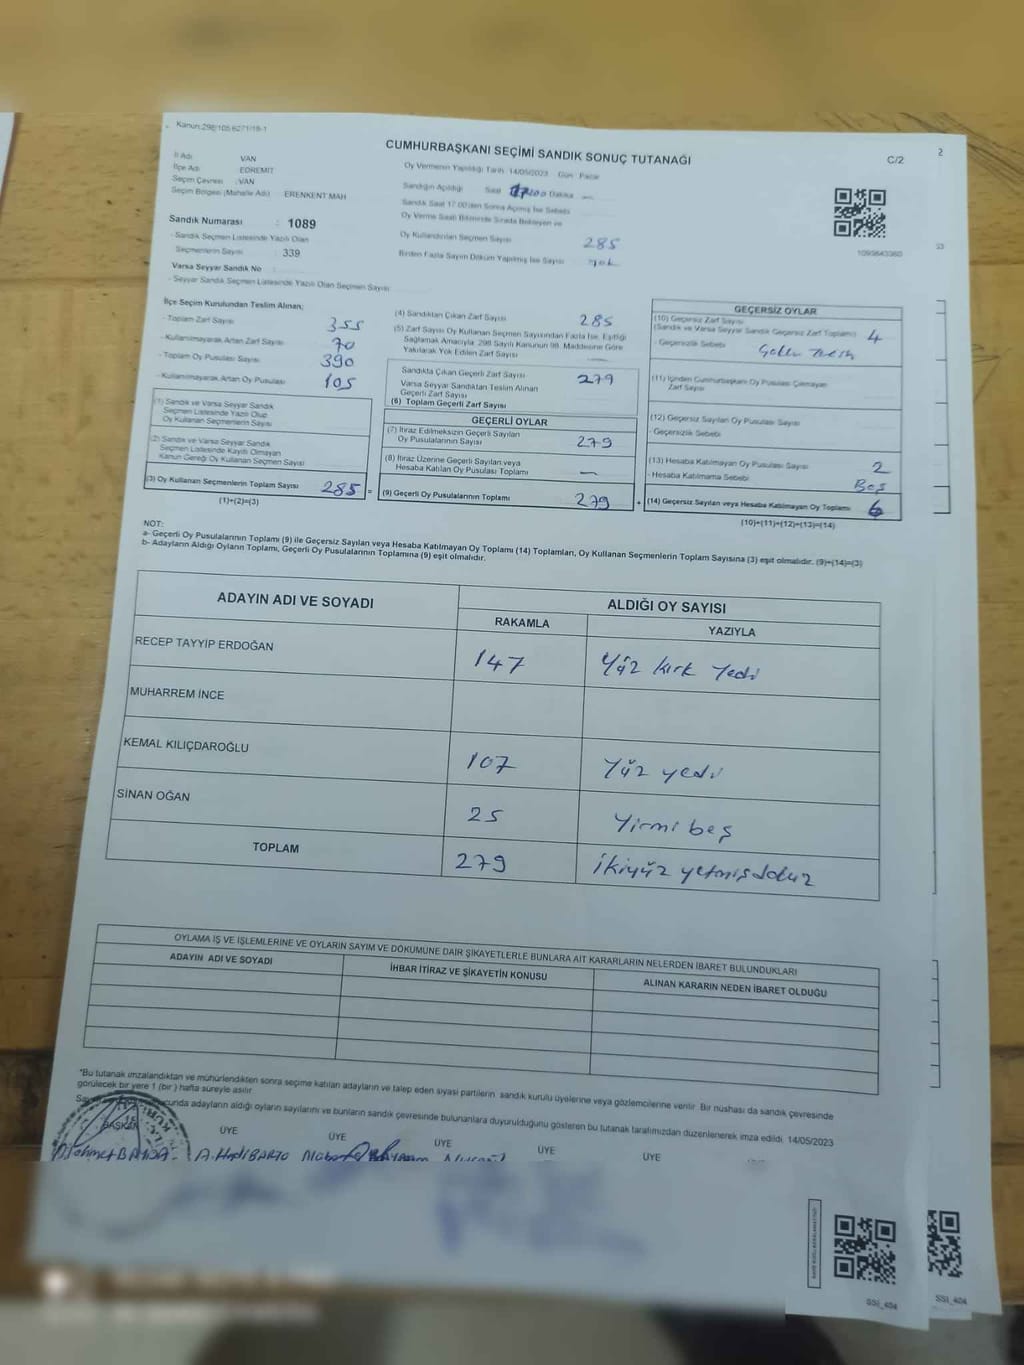 Kanun:298/105 6271/18-1
CUMHURBAŞKANI SEÇİMİ SANDIK SONUÇ TUTANAĞI
C/2
2
İl Adı VAN
İlçe Adı EDREMIT
Seçim Çevresi : VAN
Seçim Bölgesi (Mahalle Adı) ERENKENT MAH
Sandık Numarası : 1089
- Sandık Seçmen Listesinde Yazılı Olan
Seçmenlerin Sayısı : 339
Varsa Seyyar Sandık No
- Seyyar Sandık Seçmen Listesinde Yazılı Olan Seçmen Sayısı
Oy Vermenin Yapıldığı Tarih 14/05/2023 Gün Pazar
Sandığın Açıldığı Saat Dakika
Sandık Saat 17:00'den Sonra Açılmış İse Sebebi
Oy Verme Saati Bitiminde Sırada Bekleyen ve
Oy Kullandırılan Seçmen Sayısı 285
Birden Fazla Sayım Döküm Yapılmış İse Sayısı yok
1099843360
33
İlçe Seçim Kurulundan Teslim Alınan;
- Toplam Zarf Sayısı 355
- Kullanılmayarak Artan Zarf Sayısı 70
- Toplam Oy Pusulası Sayısı 390
- Kullanılmayarak Artan Oy Pusulası 105
(1) Sandık ve Varsa Seyyar Sandık
Seçmen Listesinde Yazılı Olup
Oy Kullanan Seçmenlerin Sayısı
(2) Sandık ve Varsa Seyyar Sandık
Seçmen Listesinde Kayıtlı Olmayan
Kanun Gereği Oy Kullanan Seçmen Sayısı
(3) Oy Kullanan Seçmenlerin Toplam Sayısı 285 =
(1)+(2)=(3)
(4) Sandıktan Çıkan Zarf Sayısı 285
(5) Zarf Sayısı Oy Kullanan Seçmen Sayısından Fazla İse, Eşitliği
Sağlamak Amacıyla, 298 Sayılı Kanunun 98. Maddesine Göre
Yakılarak Yok Edilen Zarf Sayısı —
Sandıkta Çıkan Geçerli Zarf Sayısı 279
Varsa Seyyar Sandıktan Teslim Alınan
Geçerli Zarf Sayısı
(6) Toplam Geçerli Zarf Sayısı
GEÇERLİ OYLAR
(7) İtiraz Edilmeksizin Geçerli Sayılan
Oy Pusulalarının Sayısı 279
(8) İtiraz Üzerine Geçerli Sayılan veya
Hesaba Katılan Oy Pusulası Toplamı —
(9) Geçerli Oy Pusulalarının Toplamı 279 +
GEÇERSİZ OYLAR
(10) Geçersiz Zarf Sayısı
(Sandık ve Varsa Seyyar Sandık Geçersiz Zarf Toplamı) 4
- Geçersizlik Sebebi
(11) İçinden Cumhurbaşkanı Oy Pusulası Çıkmayan
Zarf Sayısı
(12) Geçersiz Sayılan Oy Pusulası Sayısı
- Geçersizlik Sebebi
(13) Hesaba Katılmayan Oy Pusulası Sayısı 2
- Hesaba Katılmama Sebebi Boş
(14) Geçersiz Sayılan veya Hesaba Katılmayan Oy Toplamı 6
(10)+(11)+(12)+(13)=(14)
NOT:
a- Geçerli Oy Pusulalarının Toplamı (9) ile Geçersiz Sayılan veya Hesaba Katılmayan Oy Toplamı (14) Toplamları, Oy Kullanan Seçmenlerin Toplam Sayısına (3) eşit olmalıdır. (9)+(14)=(3)
b- Adayların Aldığı Oyların Toplamı, Geçerli Oy Pusulalarının Toplamına (9) eşit olmalıdır.
ADAYIN ADI VE SOYADI
ALDIĞI OY SAYISI
RAKAMLA YAZIYLA
RECEP TAYYİP ERDOĞAN 147 Yüz kırk yedi
MUHARREM İNCE
KEMAL KILIÇDAROĞLU 107 Yüz yedi
SİNAN OĞAN 25 Yirmi beş
TOPLAM 279 İkiyüz yetmişdokuz
OYLAMA İŞ VE İŞLEMLERİNE VE OYLARIN SAYIM VE DÖKÜMÜNE DAİR ŞİKAYETLERLE BUNLARA AİT KARARLARIN NELERDEN İBARET BULUNDUKLARI
ADAYIN ADI VE SOYADI İHBAR İTİRAZ VE ŞİKAYETİN KONUSU ALINAN KARARIN NEDEN İBARET OLDUĞU
*Bu tutanak imzalandıktan ve mühürlendikten sonra seçime katılan adayların ve talep eden siyasi partilerin sandık kurulu üyelerine veya gözlemcilerine verilir. Bir nüshası da sandık çevresinde
görülecek bir yere 1 (bir) hafta süreyle asılır.
adayların aldığı oyların sayılarını ve bunların sandık çevresinde bulunanlara duyurulduğunu gösteren bu tutanak tarafımızdan düzenlenerek imza edildi. 14/05/2023
BAŞKAN ÜYE ÜYE ÜYE ÜYE ÜYE
SSI_404
SSI_404